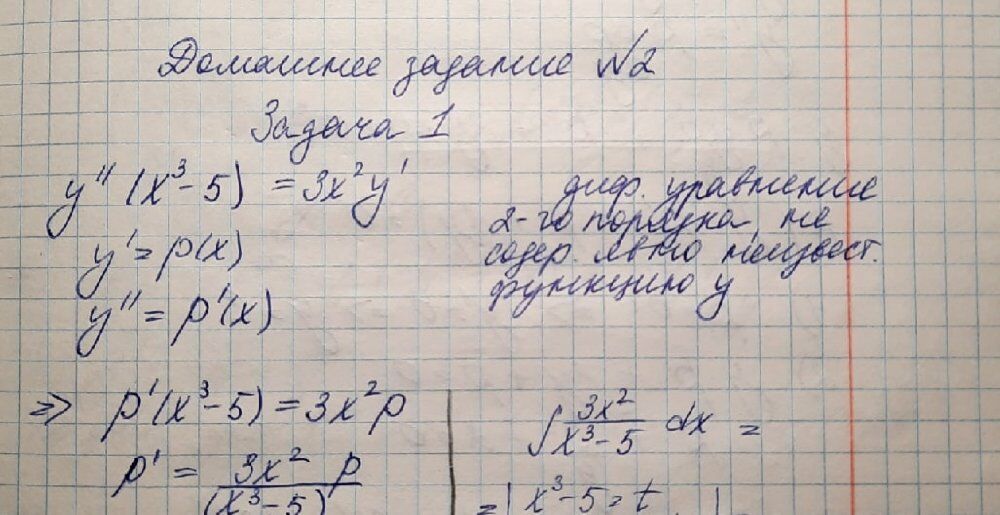 Домашнее задание №2
Задача 1
y'' (x³ - 5) = 3x² y'
y' = p(x)
y'' = p'(x)
диф. уравнение
2-го порядка, не
содер. явно неизвест.
функцию y
⇒ p'(x³ - 5) = 3x² p
p' = 3x² p / (x³ - 5)
∫ 3x² / (x³ - 5) dx =
= | x³ - 5 = t |